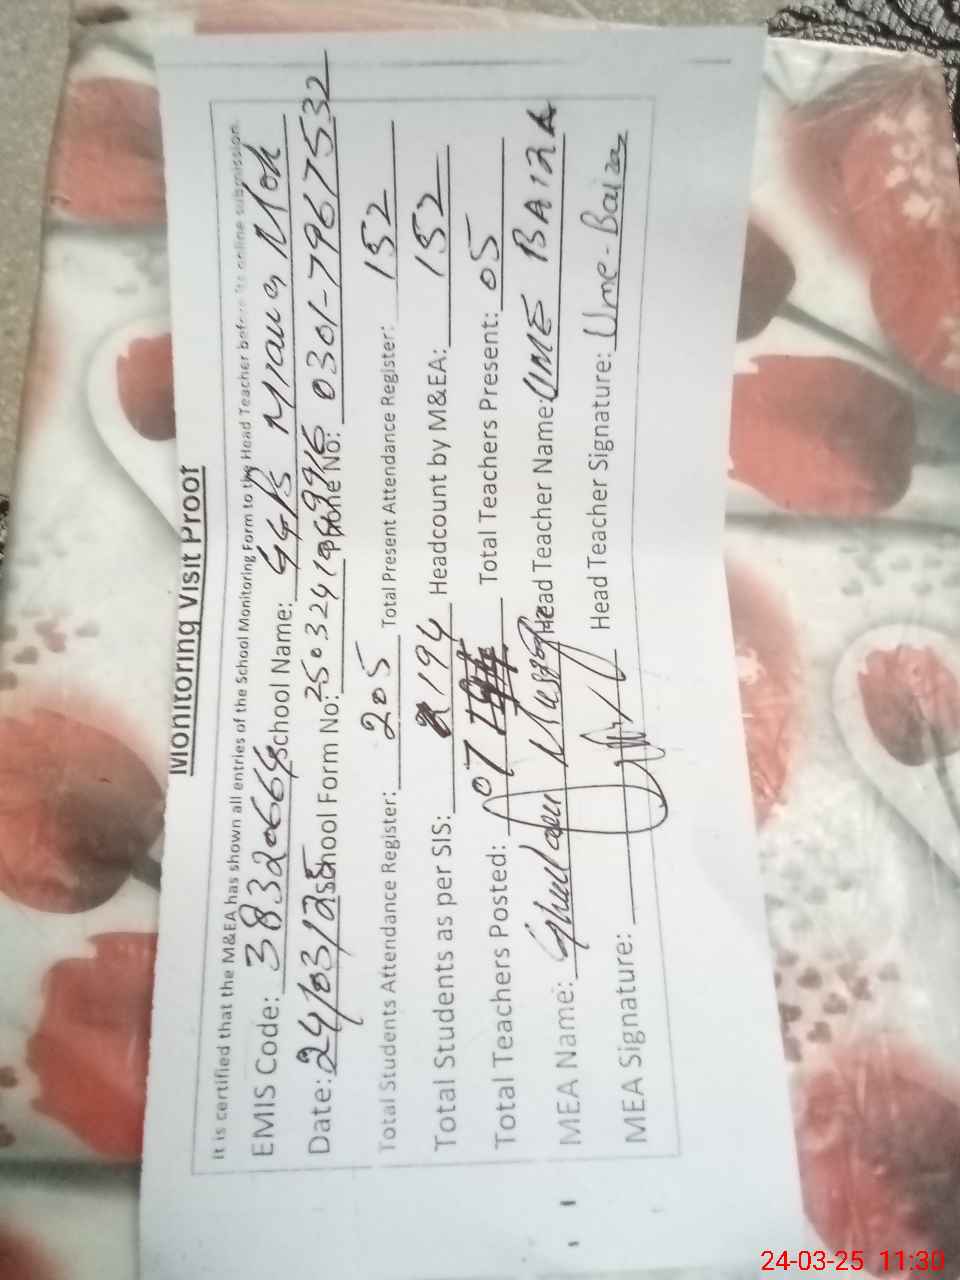 Monitoring Visit Proof
It is certified that the M&EA has shown all entries of the School Monitoring Form to the Head Teacher before its online submission.
EMIS Code: 38320664 School Name: GGPS Miang Moh
Date: 24/03/25 School Form No: Phone No: 0301-7967532
Total Students Attendance Register: 205 Total Present Attendance Register: 152
Total Students as per SIS: 194 Headcount by M&EA: 152
Total Teachers Posted: 07 Total Teachers Present: 05
MEA Name: Head Teacher Name: UME BAIZA
MEA Signature: Head Teacher Signature: Ume-Baiza
24-03-25 11:30